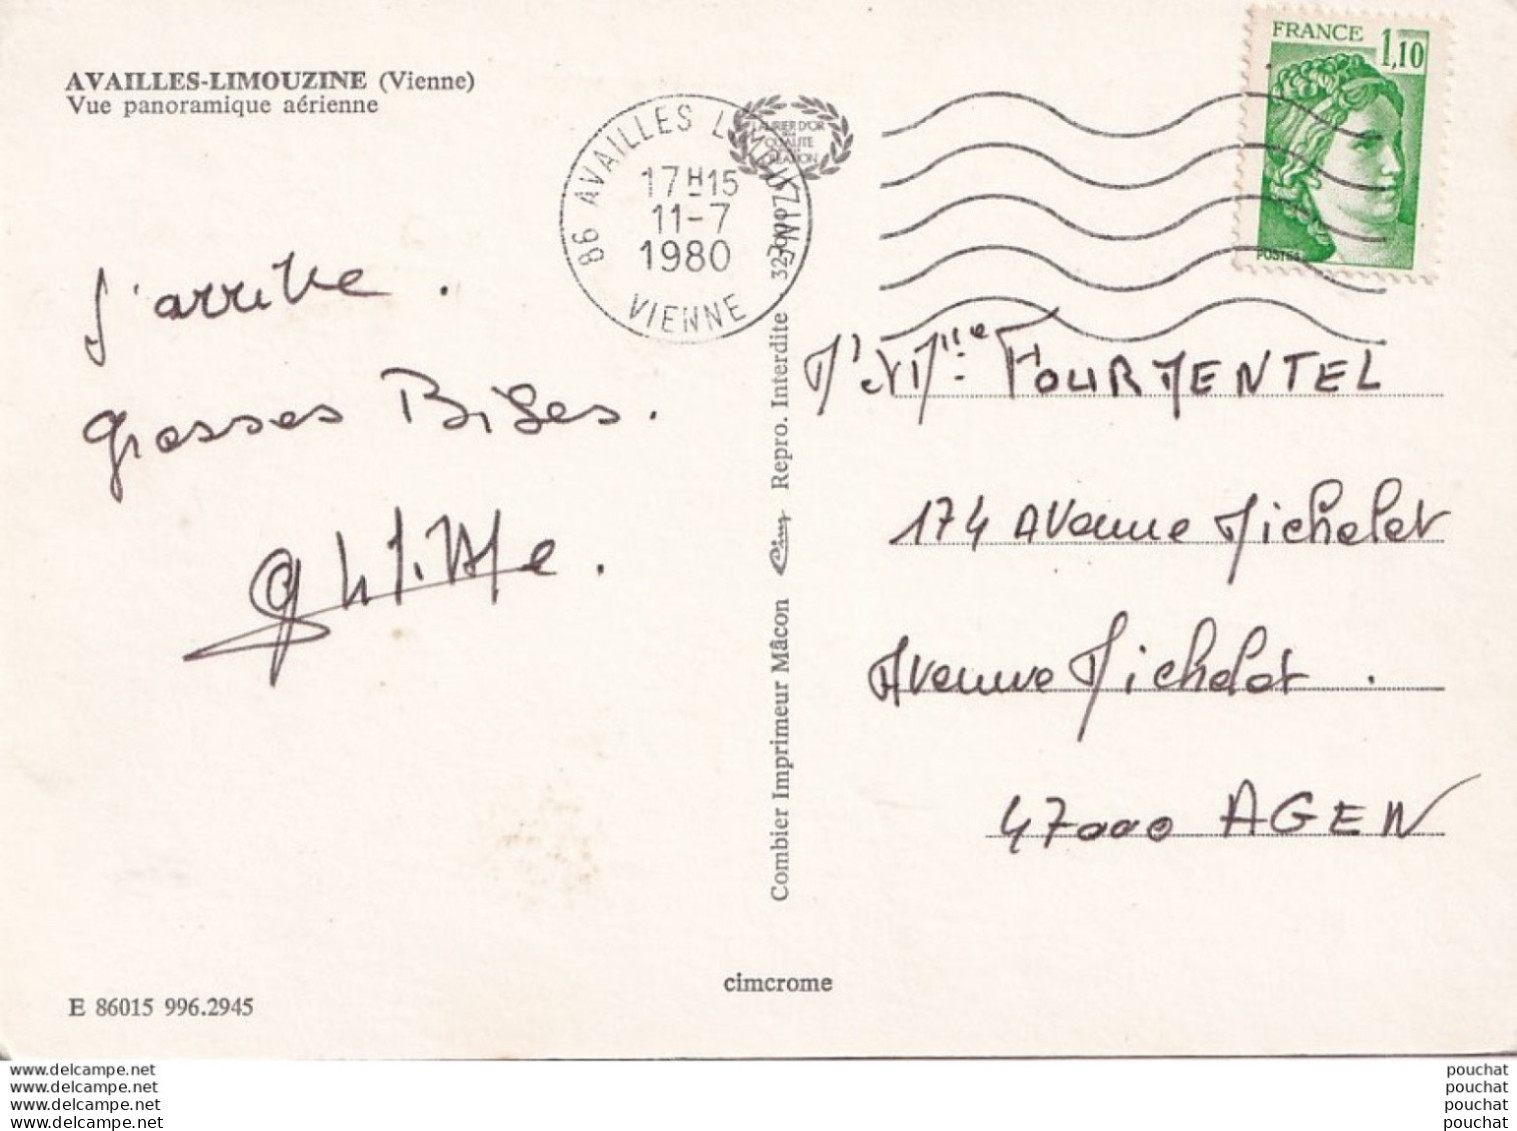 AVAILLES-LIMOUZINE (Vienne)
Vue panoramique aérienne
86 AVAILLES LIMOUZINE
17H15
11-7
1980
VIENNE
LAURIER D'OR
QUALITE
CREATION
FRANCE
1,10
POSTES
j'arrive.
grosses Bises.
Mr et Mme FOURMENTEL
174 Avenue Michelet
Avenue Michelet.
47000 AGEN
Combier Imprimeur Mâcon Cim Repro. Interdite
cimcrome
E 86015 996.2945
www.delcampe.net
www.delcampe.net
www.delcampe.net
www.delcampe.net
pouchat
pouchat
pouchat
pouchat